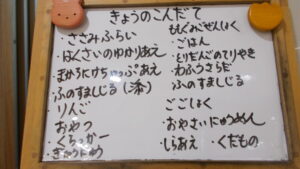 きょうのこんだて
・ささみふらい
・はくさいのゆかりあえ
・まかろにけちゃっぷあえ
ふのすましじる(そ)
りんご
おやつ
・くらっかー
ぎゅうにゅう
もぐもぐぜんしょく
・ごはん
・とりだんごのてりやき
・わふうさらだ
ふのすましじる
ごごしょく
・おやさいにゅうめん
・しらあえ ・くだもの